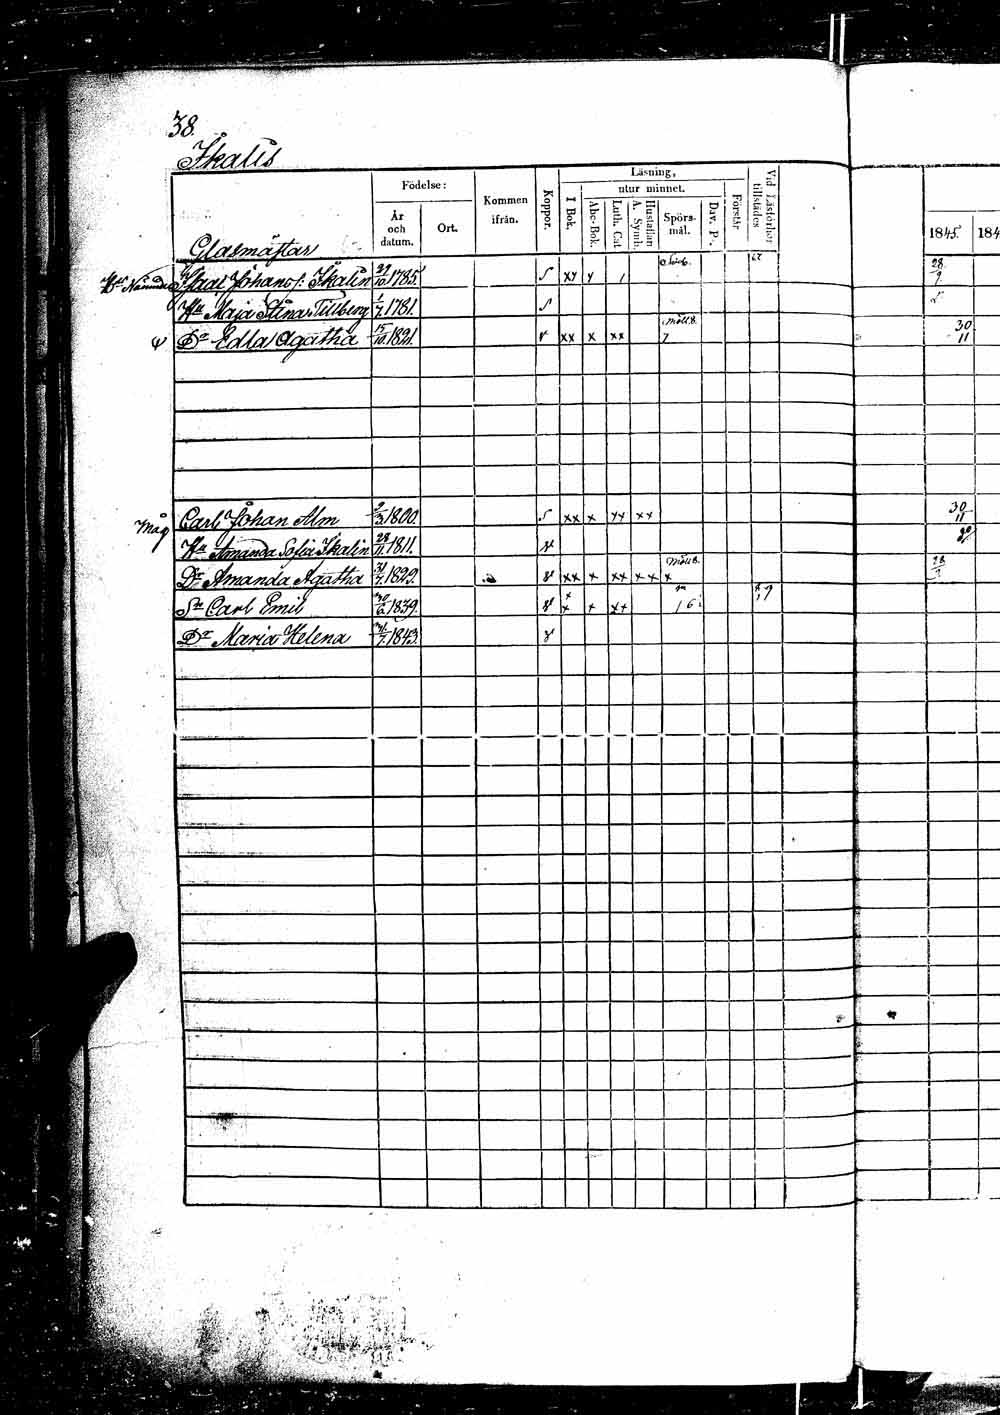 38.
Skalis
Födelse:
År och datum.
Ort.
Kommen ifrån.
Koppor.
Läsning,
utur minnet.
I Bok.
Abc-Bok.
Luth. Cat.
Hustaflan A. Symb.
Spörs-mål.
Dav. P.
Förstår
Vid Läsförhör tillstädes
1845.
184
Glasmästar
Johans: Skalin 21/10 1785. s xy y / 28/9.
Hu Maja Stina Tillberg 1/7. 1781. s
Dr Edla Agatha 15/10. 1821. v xx x xx 7 30/11
Måg Carl Johan Alm 2/3. 1800. s xx x yy xx 30/11
Hu Amanda Sofia Skalin 28/11. 1811. v
Dr Amanda Agatha 31/7. 1829. v xx x xx xx x 28/9
Sn Carl Emil 30/6. 1839. v x x x xx
Dr Maria Helena 31/7. 1843. v